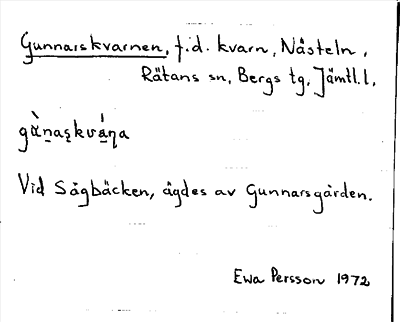 Gunnarskvarnen, f.d. kvarn, Nästeln,
Rätans sn, Bergs tg, Jämtl.l.
gànaskvána
Vid Sågbäcken, ägdes av Gunnarsgården.
Ewa Persson 1972